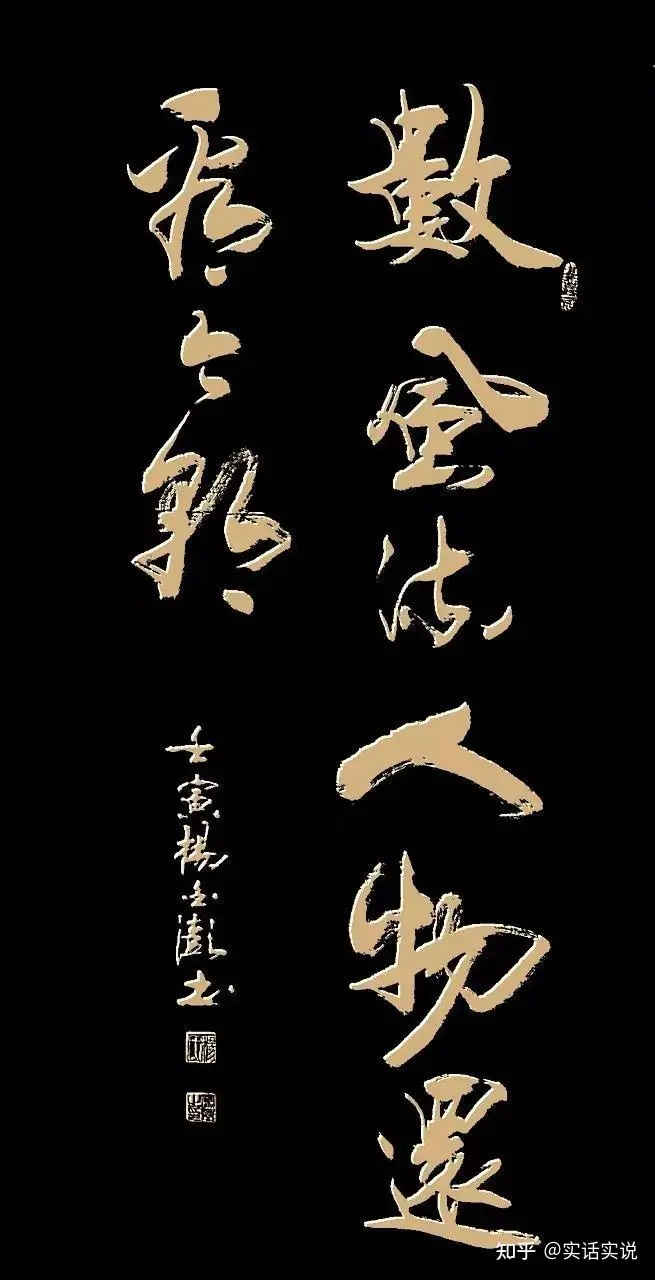 數風流人物還
看今朝
壬寅楊金澎书
知乎 @实话实说